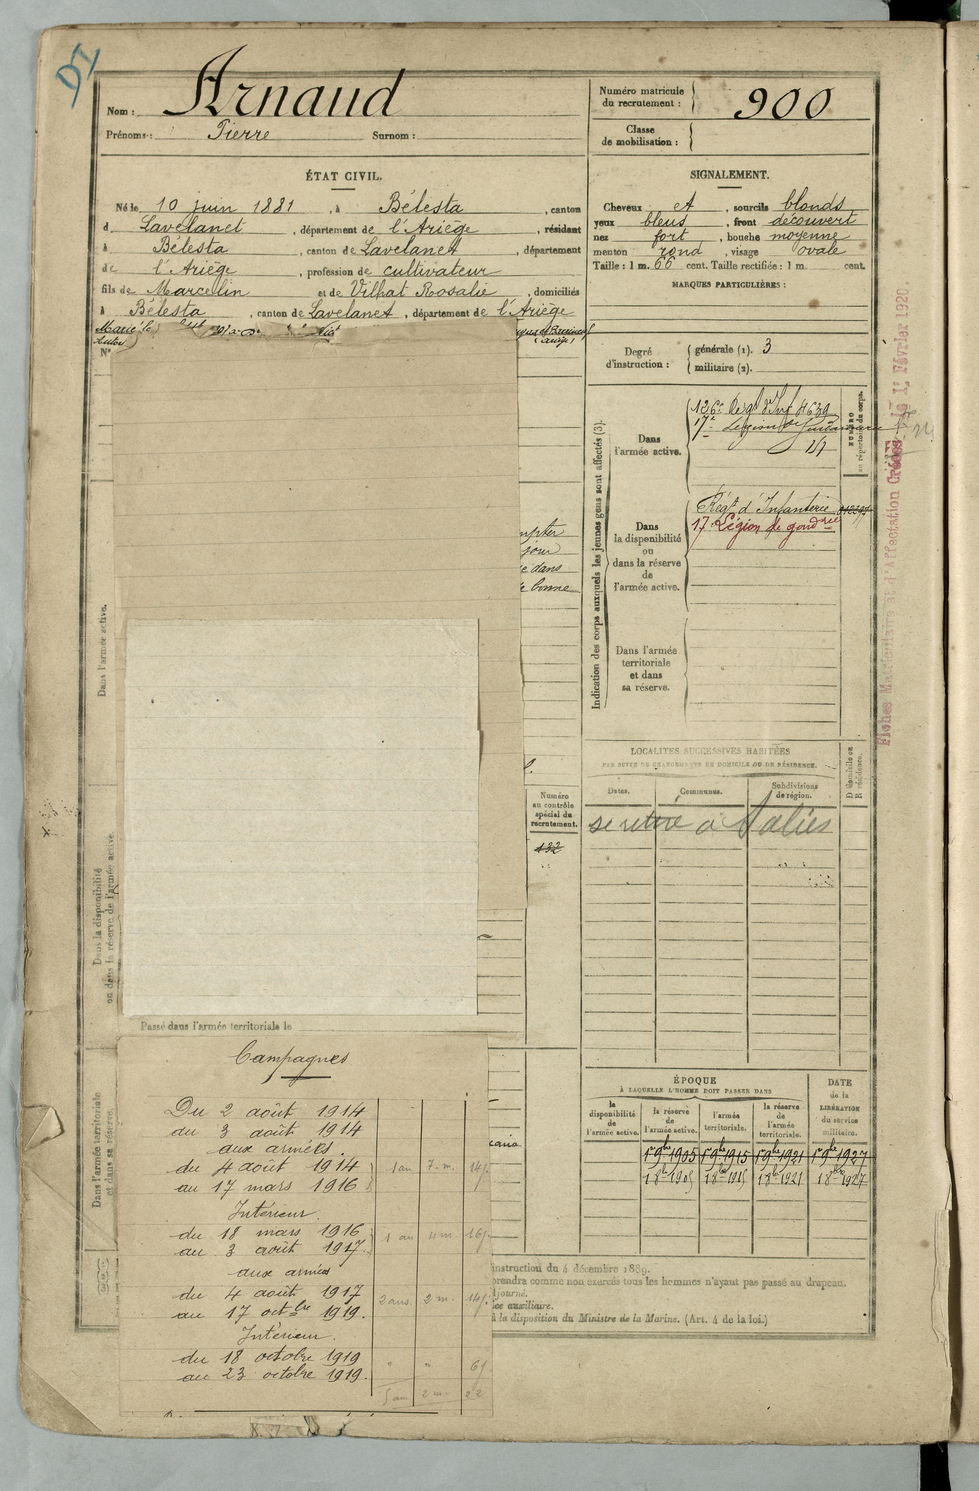 Nom : Arnaud
Prénoms : Pierre Surnom :
Numéro matricule
du recrutement : 900
Classe
de mobilisation :
ÉTAT CIVIL.
Né le 10 juin 1881, à Bélesta, canton
d Lavelanet, département de l'Ariège, résidant
à Bélesta, canton de Lavelanet, département
de l'Ariège, profession de cultivateur
fils de Marcelin et de Rosalie, domiciliés
à Bélesta, canton de Lavelanet, département de l'Ariège
Marié le
N°
SIGNALEMENT.
Cheveux et, sourcils blonds
yeux bleus, front découvert
nez fort, bouche moyenne
menton rond, visage ovale
Taille : 1 m. 66 cent. Taille rectifiée : 1 m. cent.
MARQUES PARTICULIÈRES :
Degré
d'instruction :
générale (1). 3
militaire (2).
Indication des corps auxquels les jeunes gens sont affectés (3).
NUMÉRO
au répertoire du corps.
Dans
l'armée active.
126e Régt d'Inf 4639
17e Légion de Gendarmerie
Dans
la disponibilité
ou
dans la réserve
de
l'armée active.
Régt d'Infanterie
17e Légion de gendrie
Dans l'armée
territoriale
et dans
sa réserve.
Fiches Matriculaire et d'Affectation Créées le 1er Février 1920.
Dans l'armée active.
mpter
jour
e dans
e bonne
Numéro
au contrôle
spécial du
recrutement.
132
LOCALITÉS SUCCESSIVES HABITÉES
PAR SUITE DE CHANGEMENTS DE DOMICILE OU DE RÉSIDENCE.
Dates. Communes. Subdivisions
de région. D domicile ou
R résidence.
se retire à Salies
Dans la disponibilité
ou dans la réserve de l'armée active.
Passé dans l'armée territoriale le
Dans l'armée territoriale
et dans sa réserve.
Campagnes
Du 2 août 1914
au 3 août 1914
aux armées.
du 4 août 1914
au 17 mars 1916
1 an 7 m. 14 j.
Intérieur.
du 18 mars 1916
au 3 août 1917.
1 an 4 m. 16 j.
aux armées
du 4 août 1917
au 17 octbre 1919.
2 ans. 2 m. 14 j.
Intérieur.
du 18 octobre 1919
au 23 octobre 1919.
" " 6 j
5 ans 2 m. 22
ÉPOQUE
À LAQUELLE L'HOMME DOIT PASSER DANS
DATE
de la
LIBÉRATION
du service
militaire.
la
disponibilité
de
l'armée active.
la réserve
de
l'armée active.
l'armée
territoriale.
la réserve
de
l'armée
territoriale.
1er 9bre 1905 1er 9bre 1915 1er 9bre 1921 1er 9bre 1927
1 8bre 1905 1 8bre 1915 1 8bre 1921 1 8bre 1927
instruction du 4 décembre 1889.
prendra comme non exercés tous les hommes n'ayant pas passé au drapeau.
djourné.
ice auxiliaire.
à la disposition du Ministre de la Marine. (Art. 4 de la loi.)